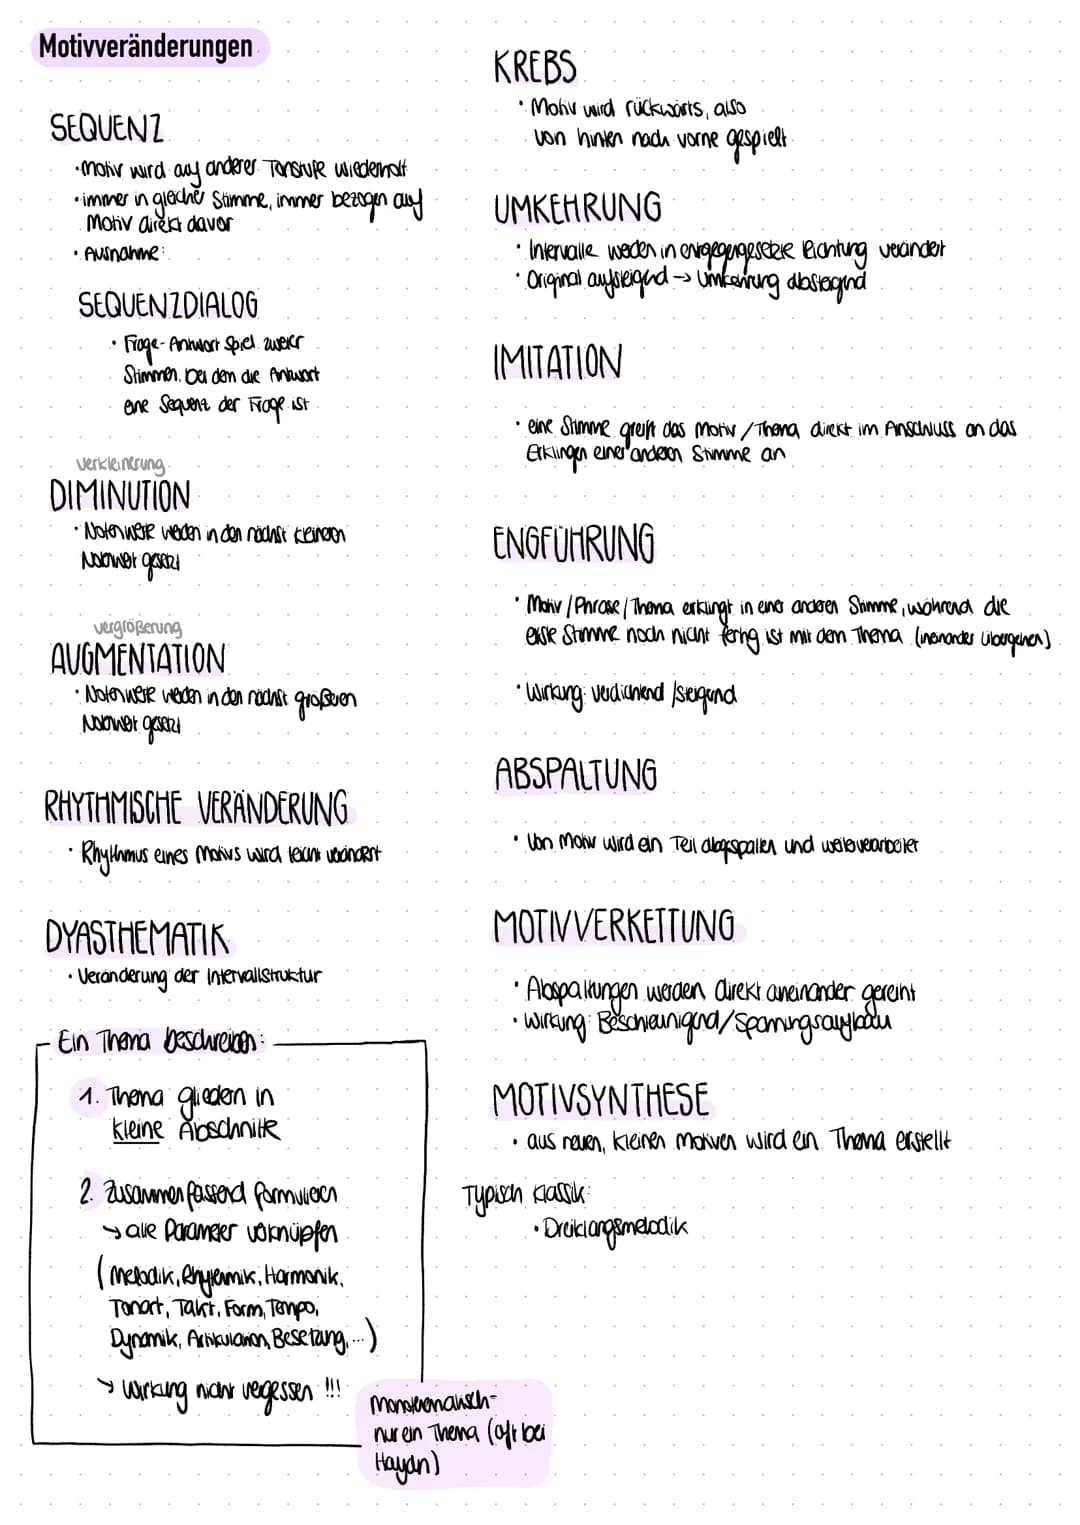 Motivveränderungen
SEQUENZ
• Motiv wird auf anderer Tonstufe wiederholt
• immer in gleicher Stimme, immer bezogen auf
Motiv direkt davor
• Ausnahme:
SEQUENZDIALOG
• Frage-Antwort Spiel zweier
Stimmen, bei dem die Antwort
eine Sequenz der Frage ist
verkleinerung
DIMINUTION
• Notenwerte werden in den nächst kleineren
Notenwert gesetzt
vergrößerung
AUGMENTATION
• Notenwerte werden in den nächst größeren
Notenwert gesetzt
RHYTHMISCHE VERÄNDERUNG
• Rhythmus eines Motivs wird leicht verändert
DYASTHEMATIK
• Veränderung der Intervallstruktur
Ein Thema beschreiben:
1. Thema gliedern in
kleine Abschnitte
2. Zusammenfassend formulieren
→ alle Parameter verknüpfen
(Melodik, Rhythmik, Harmonik,
Tonart, Takt, Form, Tempo,
Dynamik, Artikulation, Besetzung, ...)
→ Wirkung nicht vergessen !!!
Monothematisch-
nur ein Thema (oft bei
Haydn)
KREBS
• Motiv wird rückwärts, also
von hinten nach vorne gespielt
UMKEHRUNG
• Intervalle werden in entgegengesetzte Richtung verändert
• Original aufsteigend → Umkehrung absteigend
IMITATION
• eine Stimme greift das Motiv / Thema direkt im Anschluss an das
Erklingen einer anderen Stimme an
ENGFÜHRUNG
• Motiv / Phrase / Thema erklingt in einer anderen Stimme, während die
erste Stimme noch nicht fertig ist mit dem Thema (ineinander übergehen)
• Wirkung: verdichtend / steigernd
ABSPALTUNG
• Von Motiv wird ein Teil abgespalten und weiterverarbeitet
MOTIVVERKETTUNG
• Abspaltungen werden direkt aneinander gereiht
• Wirkung: Beschleunigend / Spannungsaufbau
MOTIVSYNTHESE
• aus neuen, kleinen Motiven wird ein Thema erstellt
Typisch Klassik:
• Dreiklangsmelodik